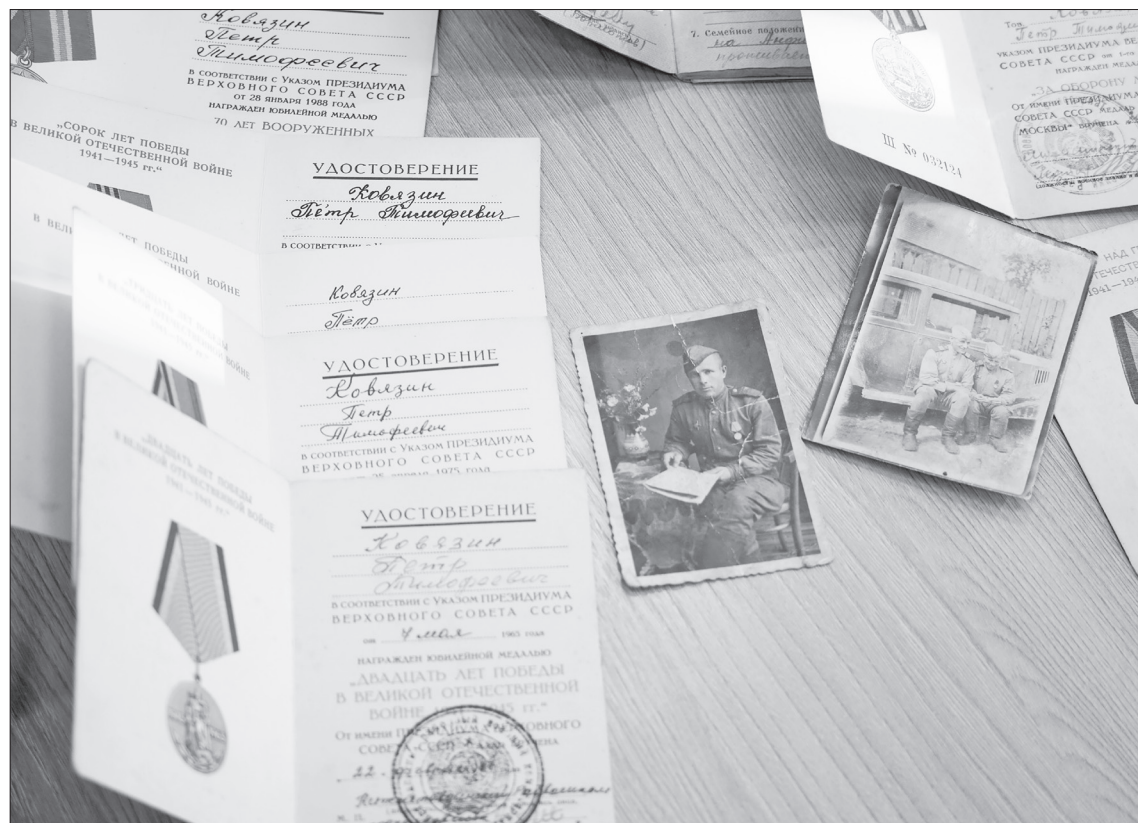 Ковязин
Петр
Тимофеевич
В СООТВЕТСТВИИ С УКАЗОМ ПРЕЗИДИУМА
ВЕРХОВНОГО СОВЕТА СССР
ОТ 28 ЯНВАРЯ 1988 ГОДА
НАГРАЖДЕН ЮБИЛЕЙНОЙ МЕДАЛЬЮ
70 ЛЕТ ВООРУЖЕННЫХ
„СОРОК ЛЕТ ПОБЕДЫ
В ВЕЛИКОЙ ОТЕЧЕСТВЕННОЙ ВОЙНЕ
1941—1945 гг.“
УДОСТОВЕРЕНИЕ
Ковязин
Пётр Тимофеевич
В СООТВЕТСТВИИ
ЛЕТ ПОБЕДЫ
ВОЙНЕ
Ковязин
Пётр
„ТРИДЦАТЬ ЛЕТ ПОБЕДЫ
В ВЕЛИКОЙ ОТЕЧЕСТВЕННОЙ ВОЙНЕ
УДОСТОВЕРЕНИЕ
Ковязин
Петр
Тимофеевич
В СООТВЕТСТВИИ С УКАЗОМ ПРЕЗИДИУМА
ВЕРХОВНОГО СОВЕТА СССР
1975 ГОДА
„ДВАДЦАТЬ ЛЕТ ПОБЕДЫ
В ВЕЛИКОЙ ОТЕЧЕСТВЕННОЙ ВОЙНЕ
1941—1945 гг.“
УДОСТОВЕРЕНИЕ
Ковязин
Петр
Тимофеевич
В СООТВЕТСТВИИ С УКАЗОМ ПРЕЗИДИУМА
ВЕРХОВНОГО СОВЕТА СССР
от 7 мая 1965 года
НАГРАЖДЕН ЮБИЛЕЙНОЙ МЕДАЛЬЮ
„ДВАДЦАТЬ ЛЕТ ПОБЕДЫ
В ВЕЛИКОЙ ОТЕЧЕСТВЕННОЙ
ВОЙНЕ 1945 гг.“
От имени
СССР
22
М. П.
7. Семейное положение
на
проживает
Тов.
Петр
УКАЗОМ ПРЕЗИДИУМА
СОВЕТА СССР от 1-го
НАГРАЖДЕН
„ЗА ОБОРОНУ
От имени ПРЕЗИДИУМА
СОВЕТА СССР МЕДАЛЬ
МОСКВЫ“ ВРУЧЕНА
Ш № 032124
НАД
1941—194